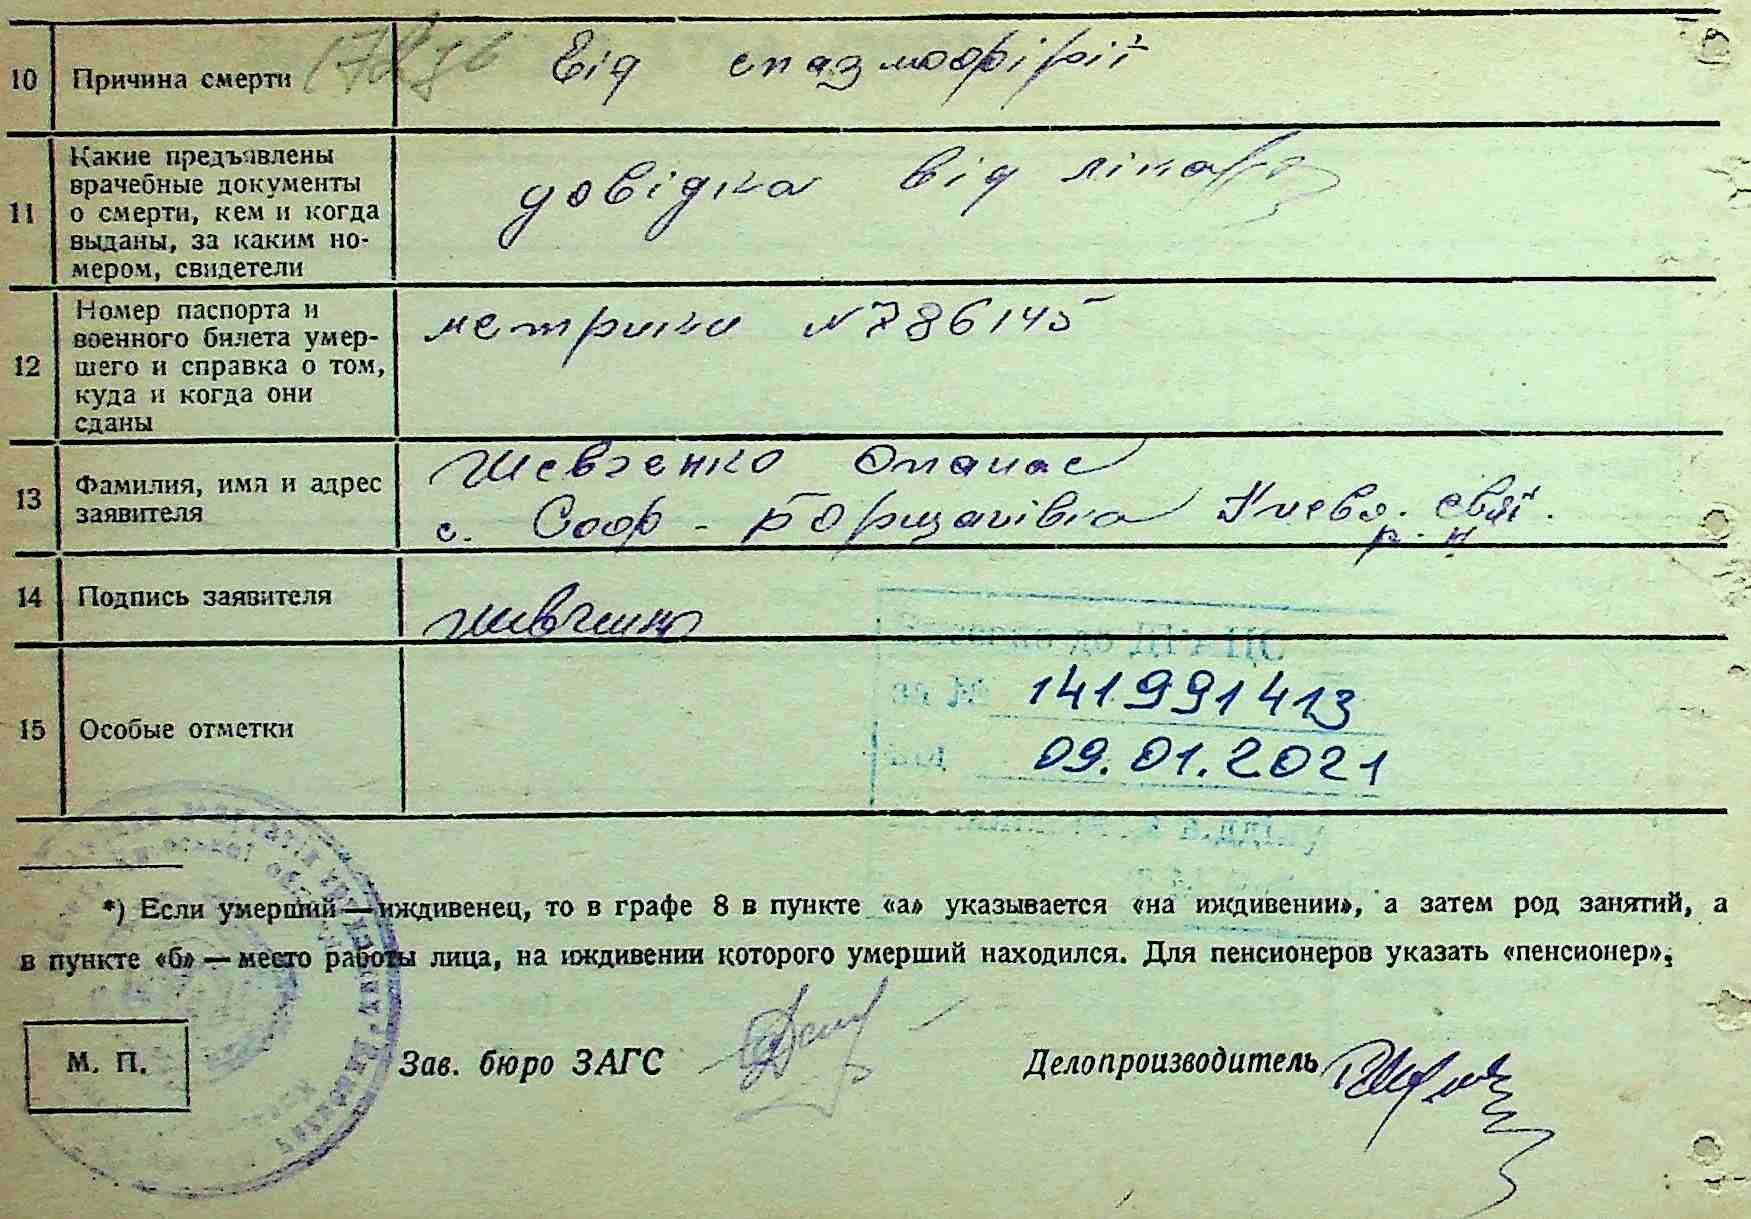 10 Причина смерти Від спазмофірії
11 Какие предъявлены
врачебные документы
о смерти, кем и когда
выданы, за каким но-
мером, свидетели
довідка від лікаря
12 Номер паспорта и
военного билета умер-
шего и справка о том,
куда и когда они
сданы
метрики №786145
13 Фамилия, имя и адрес
заявителя
Шевченко Опанас
с. Соф - Борщагівка Києво. Свят.
р-н
14 Подпись заявителя
15 Особые отметки
Внесено до ДРАЦС
за № 141991413
від 09.01.2021
*) Если умерший — иждивенец, то в графе 8 в пункте «а» указывается «на иждивении», а затем род занятий, а
в пункте «б» — место работы лица, на иждивении которого умерший находился. Для пенсионеров указать «пенсионер».
М. П. Зав. бюро ЗАГС Делопроизводитель